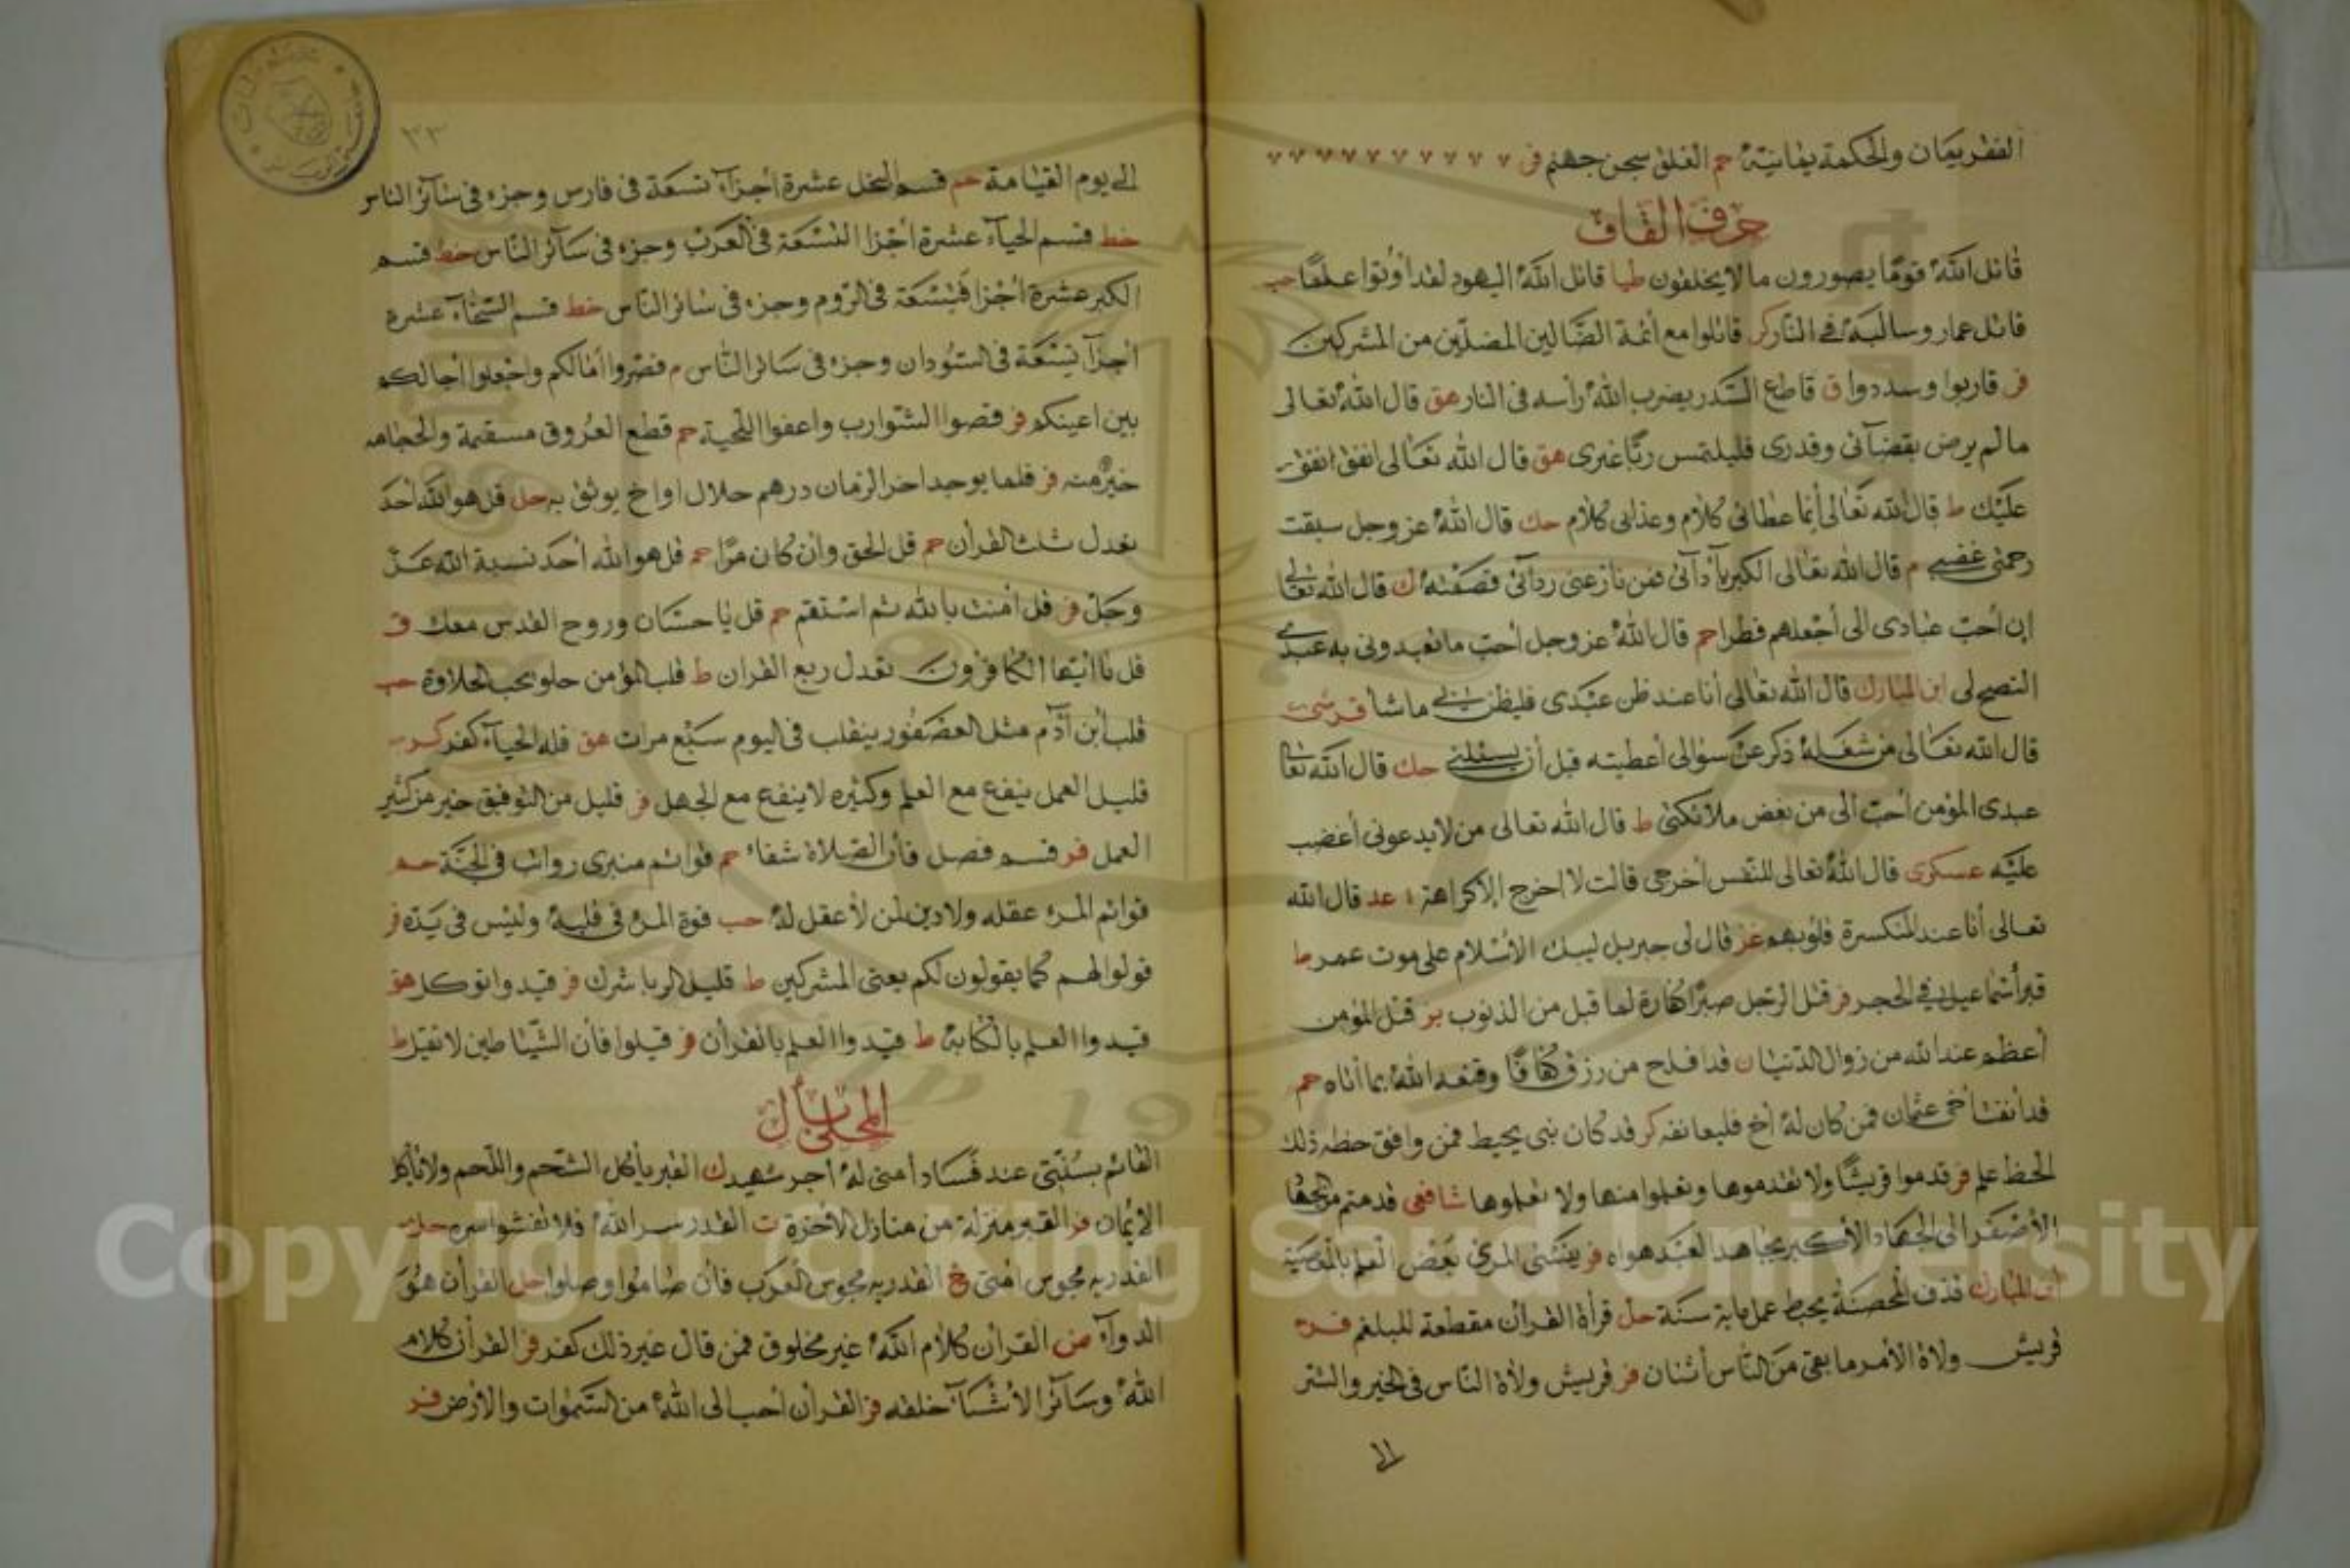 الفقر يمان والحكمة يمانية حم الفلق سجن جهنم فر
حرف القاف
قاتل الله قوما يصورون ما لا يخلقون طيا قاتل الله اليهود لقد أوتوا علما حب
قاتل عمار وسالبه في النار كر قاتلوا مع أئمة الضالين المضلين من المشركين
فر قاربوا وسددوا ق قاطع السدر يضرب الله رأسه في النار هق قال الله تعالى
ما لم يرض بقضآئى وقدرى فليلتمس ربا غيرى هق قال الله تعالى انفق انفق
عليك ط قال الله تعالى أنما عطائى كلام وعذابى كلام حك قال الله عز وجل سبقت
رحمتى غضبى م قال الله تعالى الكبريآء ردآئى فمن نازعنى ردآئى قصمته ك قال الله تعالى
ان أحب عبادى الى أجعلهم فطرا حم قال الله عز وجل أحب ما تعبدونى به عبدى
النصح لى ابن المبارك قال الله تعالى أنا عند ظن عبدى فليظن بى ما شأ
قال الله تعالى من شغله ذكرى عن سؤالى أعطيته قبل أن يسئلنى حك قال الله تعالى
عبدى المؤمن أحب الى من بعض ملائكتى ط قال الله تعالى من لا يدعونى أغضب
عليه عسكرى قال الله تعالى للنفس أخرجى قالت لا اخرج إلا كراهة عد قال الله
تعالى أنا عند المنكسرة قلوبهم غز قال لى جبريل ليبك الاسلام على موت عمر ط
قبر أسماعيل فى الحجر فر قتل الرجل صبرا كفارة لما قبل من الذنوب بز قتل المؤمن
أعظم عند الله من زوال الدنيا ن قد افلح من رزق كفافا وقنعه الله بما أتاه حم
فمن كان له أخ فليعانقه كر قد كان نبى يخيط فمن وافق حظه ذلك
الحظ علم فر قدموا قريشا ولا تقدموها وتعلموا منها ولا تعلموها شافعى قدمتم من الجهاد
الأصغر الى الجهاد الأكبر مجاهد العبد هواه فر ينسى المرئ بعض العلم بالمعصية
ابن المبارك قذف المحصنة يحبط عمل ماية سنة حل قرأة القرآن مقطعة للبلغم
قريش ولاة الأمر ما بقى من الناس أثنان فر قريش ولاة الناس فى الخير والشر
الى
٣٣
الى يوم القيامة حم قسم البخل عشرة أجزآء تسعة فى فارس وجزء فى سآئر الناس
خط قسم الحيآء عشرة أجزا التسعة فى العرب وجزء فى سآئر الناس خط قسم
الكبر عشرة أجزا فتسعة فى الروم وجزء فى سائر الناس خط قسم السخآء عشرة
أجزآ تسعة فى السودان وجزء فى سائر الناس م قصروا أمالكم واجعلوا أجالكم
بين اعينكم فر قصوا الشوارب واعفوا اللحية حم قطع العروق مسقمة والحجامه
خير منه فر قلما يوجد اخر الزمان درهم حلال او اخ يوثق به حل قل هو الله أحد
تعدل ثلث القرأن حم قل الحق وان كان مرا حم قل هو الله أحد نسبة الله عز
وجل فر قل أمنت بالله ثم استقم حم قل يا حسان وروح القدس معك ق
قل يا أيها الكافرون تعدل ربع القرأن ط قلب المؤمن حلو يحب الحلاوة حب
قلب أبن أدم مثل العصفور ينقلب فى اليوم سبع مرات هق قلة الحيآء كفر كر
قليل العمل ينفع مع العلم وكثيره لا ينفع مع الجهل فر قليل من التوفيق خير من كثير
العمل فر قسم فصل فأن الصلاة شفاء حم قوائم منبرى رواتب فى الجنة حم
قوائم المرء عقله ولا دين لمن لا عقل له حب قوة المرء فى قلبه وليس فى يده فر
قولوا لهم كما يقولون لكم يعنى المشركين ط قليل الربا شرك فر قيد واتوكل هق
قيدوا العلم بالكتابة ط قيدوا العلم بالقرأن فر قيلوا فأن الشياطين لا تقيل ط
المحلى بأل
القائم بسنتى عند فساد أمتى له أجر شهيد ك القبر يأكل الشحم واللحم ولا يأكل
الايمان فر القبر منزلة من منازل الأخرة ت القدر سر الله فلا تفشوا سره حل
القدريه مجوس امتى خ القدريه مجوس العرب فأن صاموا وصلوا حل القرأن هو
الدوآء ض القرأن كلام الله غير مخلوق فمن قال غير ذلك كفر فر القرأن كلام
الله وسآئر الأشيآء خلقه فر القرأن أحب الى الله من السموات والأرض فر
Copyright © King Saud University
1957